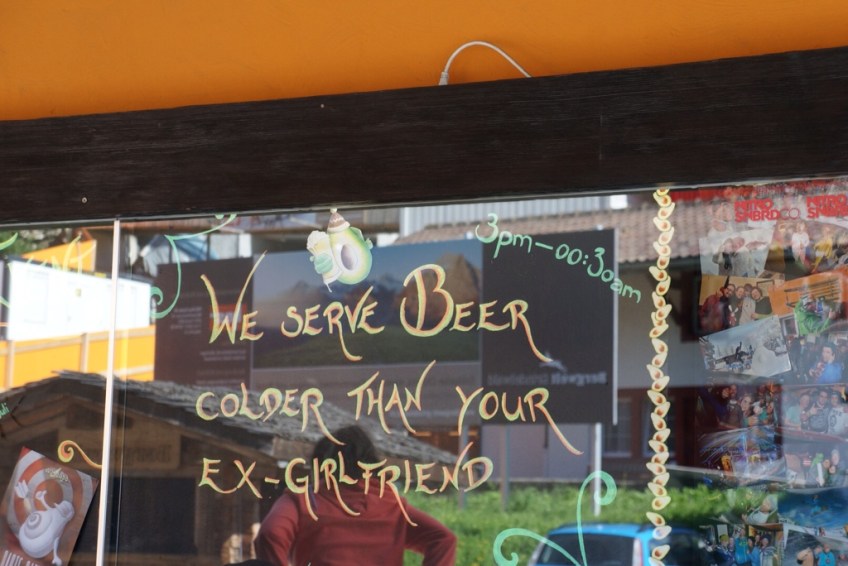 3pm-00:30am
WE SERVE BEER
COLDER THAN YOUR
EX-GIRLFRIEND
NITRO
SNBRDCO
NITRO